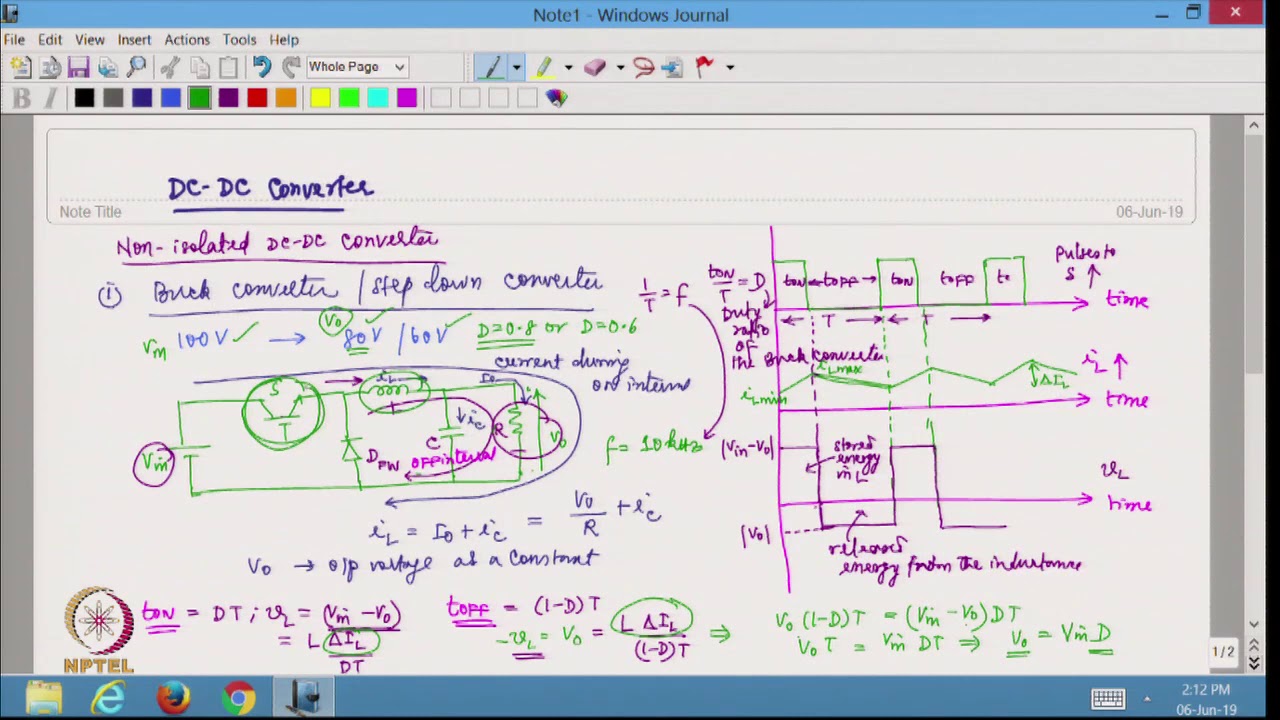 Note1 - Windows Journal
File Edit View Insert Actions Tools Help
Whole Page
B I
DC-DC Converter
Note Title
06-Jun-19
Non-isolated DC-DC Converter
① Buck converter / step down converter
Vin 100V → V0 80V / 60V D=0.8 or D=0.6
current during
on interval
S iL I0
Vin DFW OFF interval C ic R V0
iL = I0 + ic = V0/R + ic
V0 → o/p voltage as a constant
1/T = f
f = 10 kHz
ton/T = D
Duty
ratio
of
the Buck converter
ton toff ton toff
T T
Pulses to
S
time
iLmin iLmax ΔIL
iL
time
|Vin-V0|
stored
energy
in L
vL
time
|V0|
released
energy from the inductance
ton = DT ; vL = (Vin - V0)
= L ΔIL/DT
toff = (1-D)T
-vL = V0 = L ΔIL/(1-D)T ⇒
V0 (1-D)T = (Vin - V0) DT
V0 T = Vin DT ⇒ V0 = Vin D
NPTEL
1/2
2:12 PM
06-Jun-19